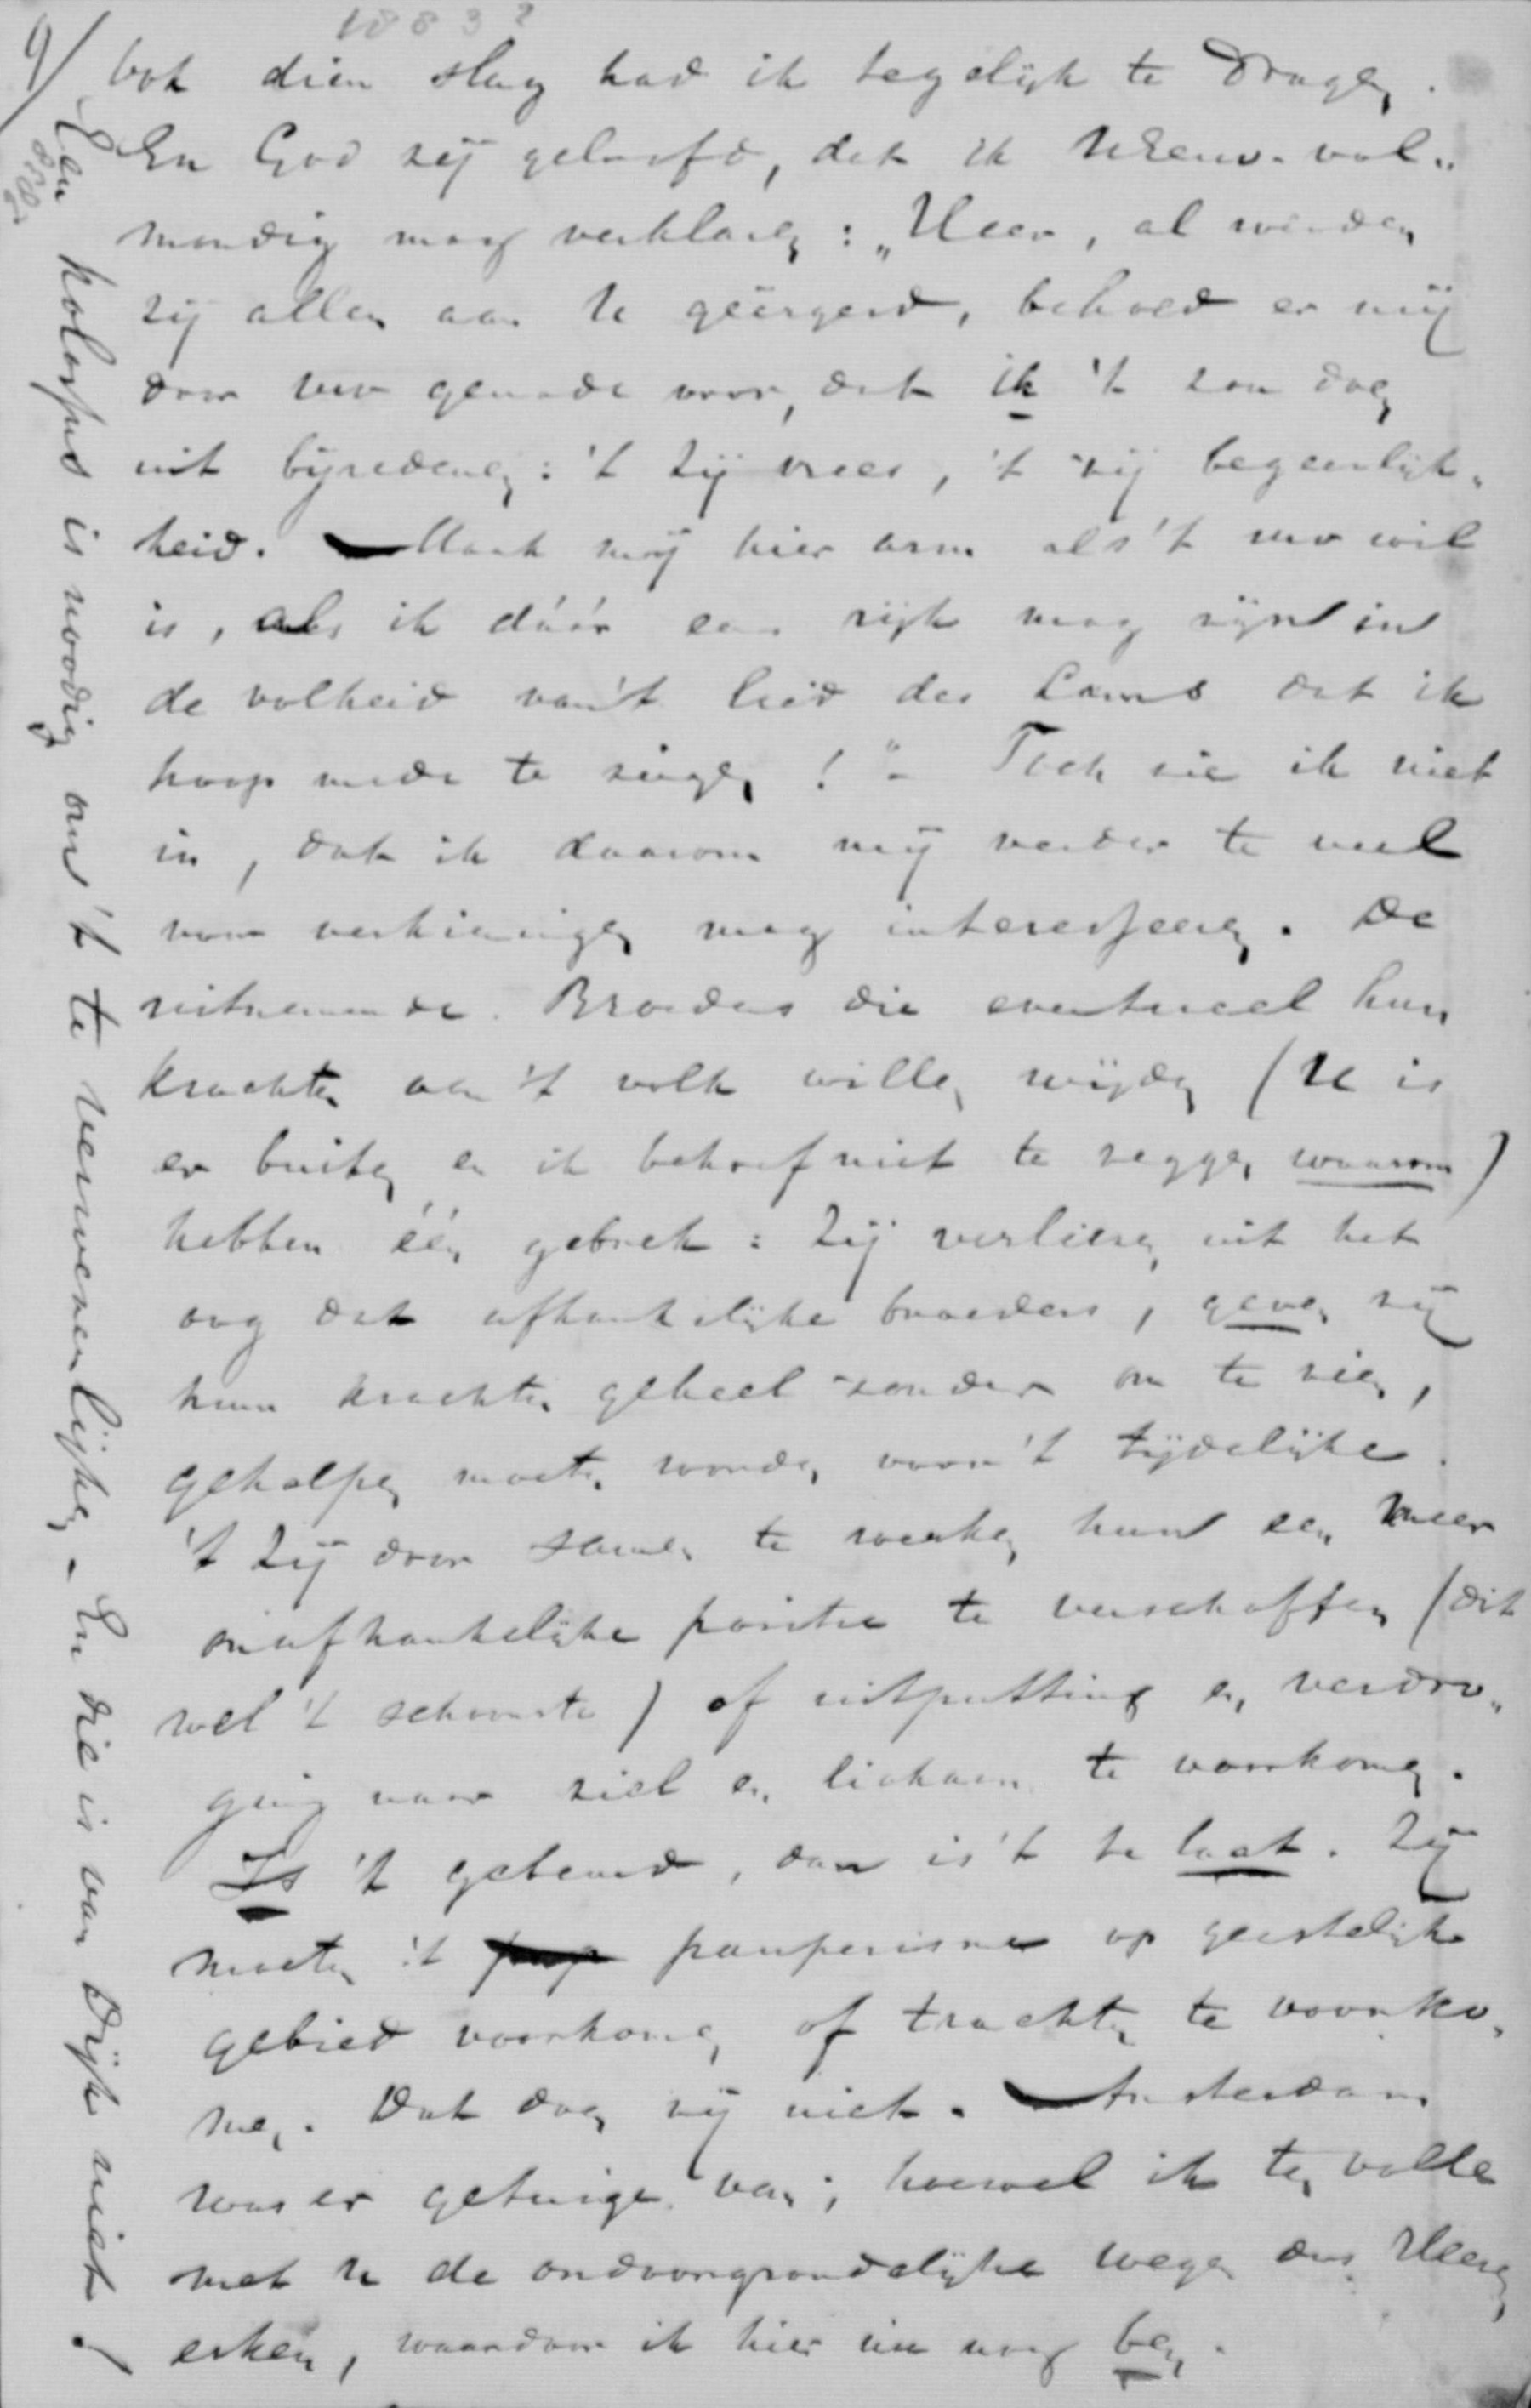 1883?
9/ Ook dien slag had ik tegelijk te dragen.
En God zij geloofd, dat ik UEerw. vol-
mondig mag verklaren: „Heer, al werden
zij allen aan U geërgerd, behoed er mij
door uw genade voor, dat ik 't zou doen
uit bijredenen: 't zij vrees, 't zij begeerlijk-
heid. Maak mij hier arm als 't uw wil
is, als ik dáár een rijk mag zijn in
de volheid van 't lied des Lams dat ik
hoop mede te zingen!" – Toch zie ik niet
in, dat ik daarom mij verder te veel
voor verkiezingen mag interesseeren. De
uitnemende Broeders die eventueel hun
krachten aan 't volk willen wijden (U is
er buiten en ik behoef niet te zeggen waarom)
hebben één gebrek: Zij verliezen uit het
oog dat afhankelijke broeders, geven zij
hun krachten geheel zonder om te zien,
geholpen moeten worden voor 't tijdelijke.
't Zij door samen te werken hun een meer
onafhankelijke positie te verschaffen (dit
wel 't schoonste) of uitputting en verdro-
ging naar ziel en lichaam te voorkomen.
Is 't gebeurd, dan is 't te laat. Zij
moeten 't pauperisme op geestelijk
gebied voorkomen of trachten te voorko-
men. Dat doen zij niet. Amsterdam
was er getuige van; hoewel ik ten volle
met U de ondoorgrondelijke wegen des Heeren
erken, waardoor ik hier nu nog ben.
Een kolossus is noodig om 't te verwezenlijken. En die is van Dijk niet!